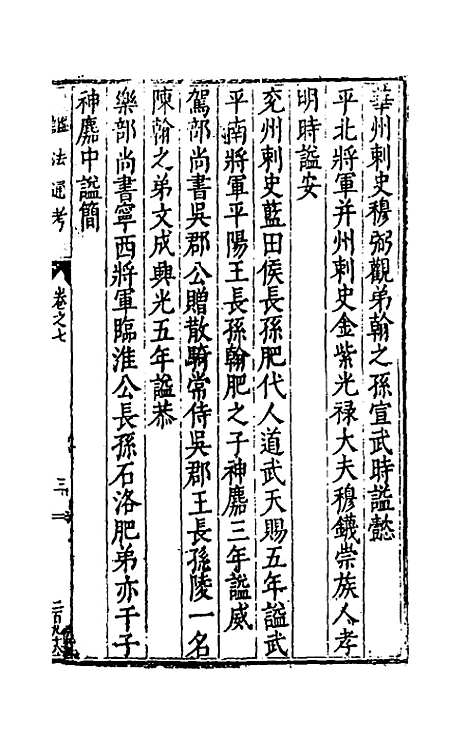 華州刺史穆弼觀弟翰之孫宣武時謚懿
平北將軍并州刺史金紫光禄大夫穆鑖崇族人孝
明時謚安
兖州刺史藍田侯長孫肥代人道武天賜五年謚武
平南將軍平陽王長孫翰肥之子神䴥三年謚威
駕部尚書吳郡公贈散騎常侍吳郡王長孫陵一名
陳翰之弟文成興光五年謚恭
樂部尚書寧西將軍臨淮公長孫石洛肥弟亦干子
神䴥中謚簡
謚法通考
卷之七
三